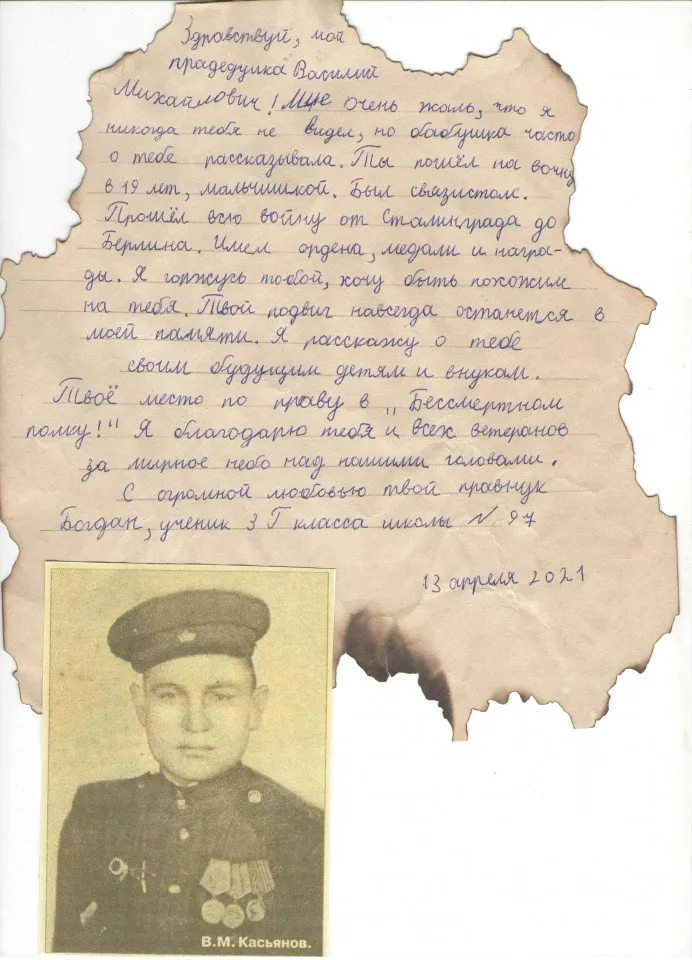 Здравствуй, мой
прадедушка Василий
Михайлович! Мне очень жаль, что я
никогда тебя не видел, но бабушка часто
о тебе рассказывала. Ты пошёл на войну
в 19 лет, мальчишкой. Был связистом.
Прошёл всю войну от Сталинграда до
Берлина. Имел ордена, медали и награ-
ды. Я горжусь тобой, хочу быть похожим
на тебя. Твой подвиг навсегда останется в
моей памяти. Я расскажу о тебе
своим будущим детям и внукам.
Твоё место по праву в „Бессмертном
полку!" Я благодарю тебя и всех ветеранов
за мирное небо над нашими головами.
С огромной любовью твой правнук
Богдан, ученик 3 Г класса школы № 97
13 апреля 2021
В.М. Касьянов.